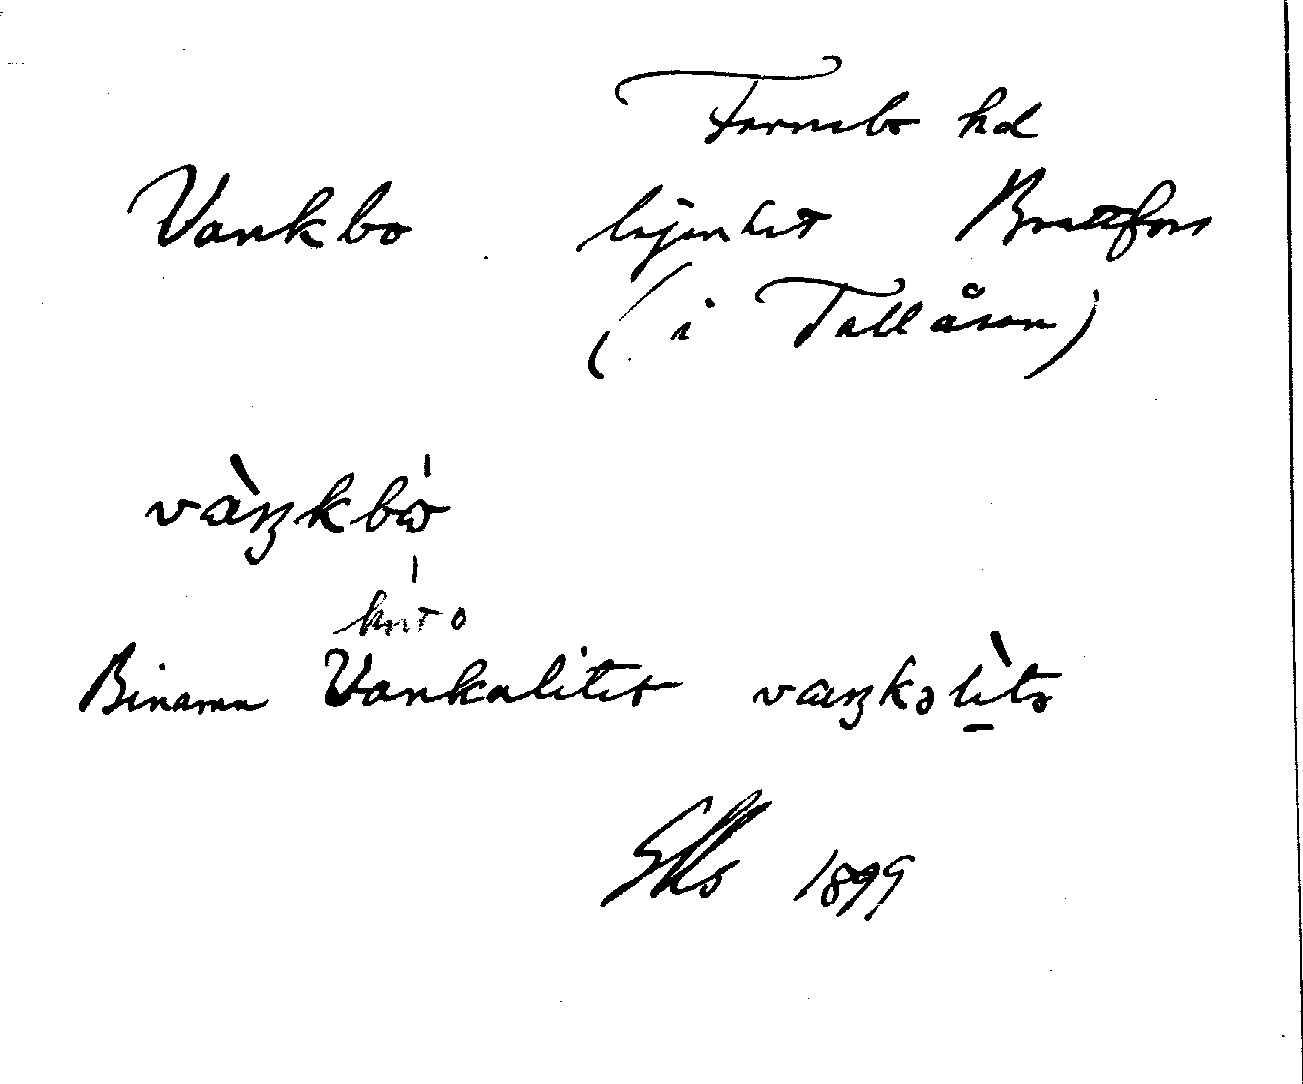 Färnebo hd
Vankbo lägenhet Brattfors
(i Tallåsen)
vàŋkbo
Binamn Vankaliten vaŋkəlìtə
1899